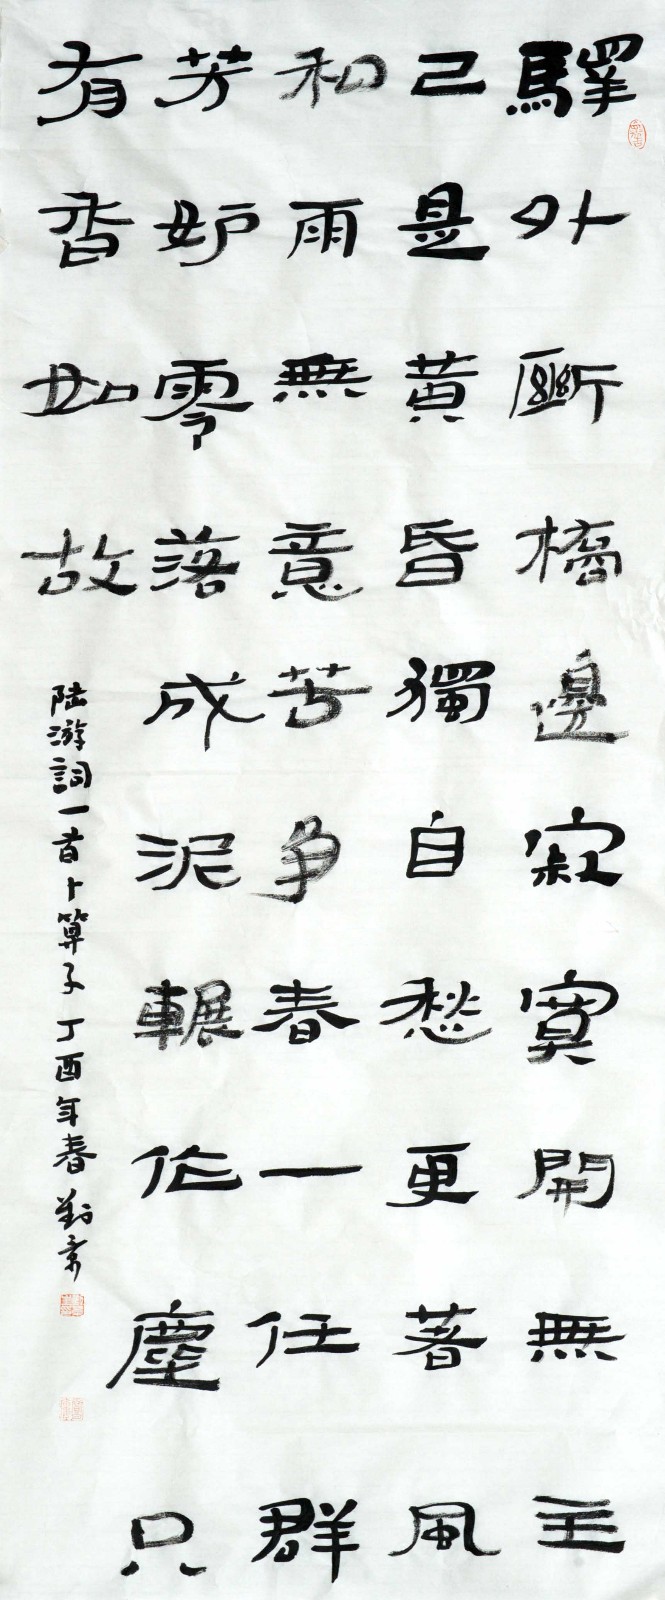 驛外斷橋邊寂寞開無主
已是黃昏獨自愁更著風
和雨無意苦争春一任群
芳妒零落成泥輾作塵只
有香如故
陆游詞一首卜算子丁酉年春